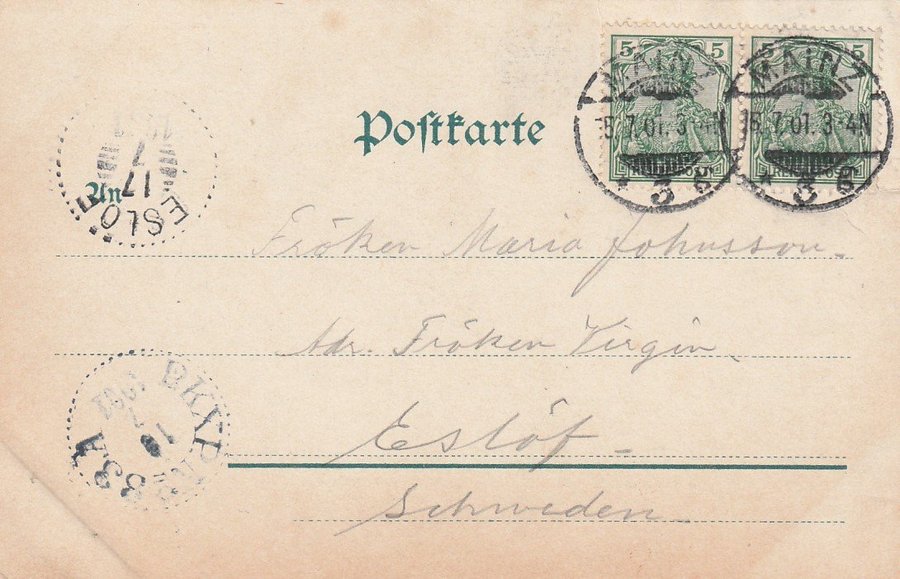 5 5 5 5
MAINZ MAINZ
15.7.01.3-4N 15.7.01.3-4N
REICHSPOST
* 3 g * 3 g
Postkarte
1901
7
17
ESLÖF
An
Fröken Maria Johnsson
Adr. Fröken Virgin
Eslöf
Schweden
PKXP
1901
7
33 A